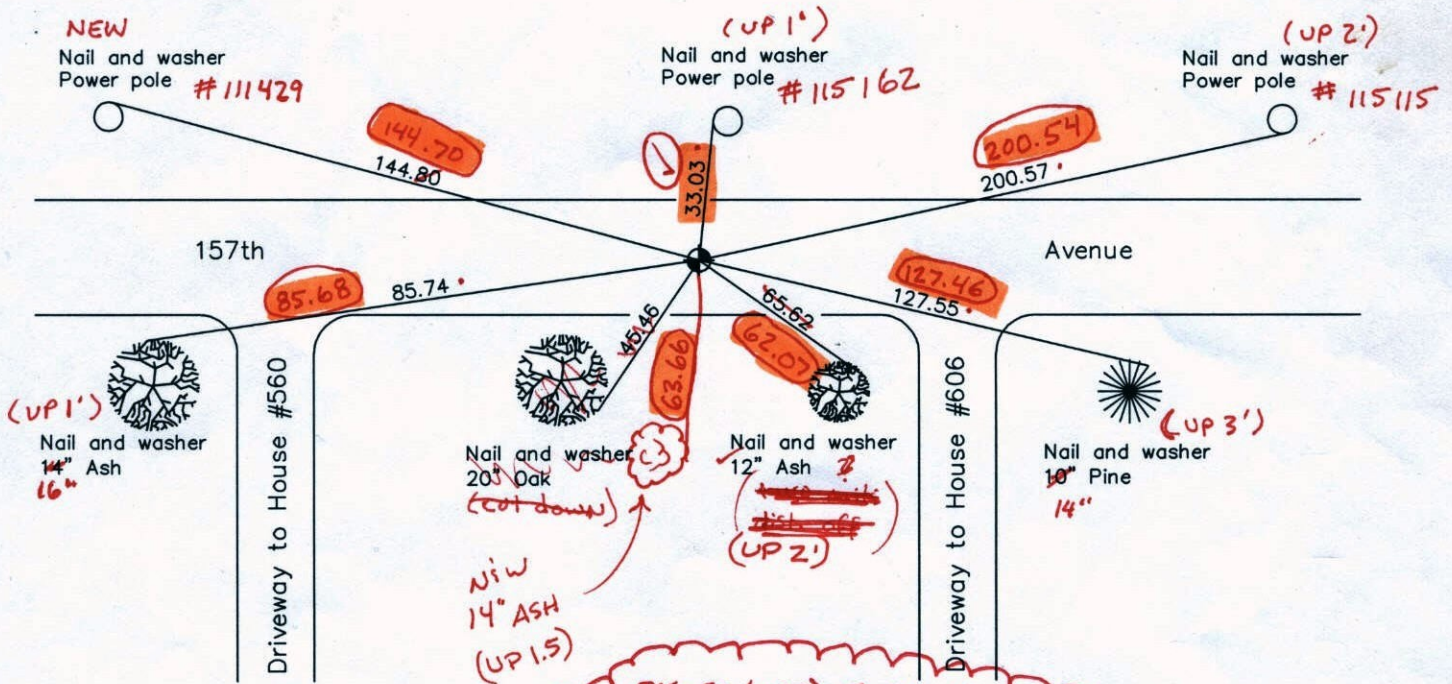 NEW
Nail and washer
Power pole
#111429
(UP 1')
Nail and washer
Power pole
#115162
(UP 2')
Nail and washer
Power pole
#115115
144.70
144.80
33.03
200.54
200.57
157th
Avenue
85.68
85.74
45.46
63.66
65.62
62.07
127.46
127.55
(UP 1')
Nail and washer
14" Ash
16"
Driveway to House #560
Nail and washer
20" Oak
(cut down)
NEW
14" ASH
(UP 1.5)
Nail and washer
12" Ash ?
(UP 2')
Driveway to House #606
(UP 3')
Nail and washer
10" Pine
14"